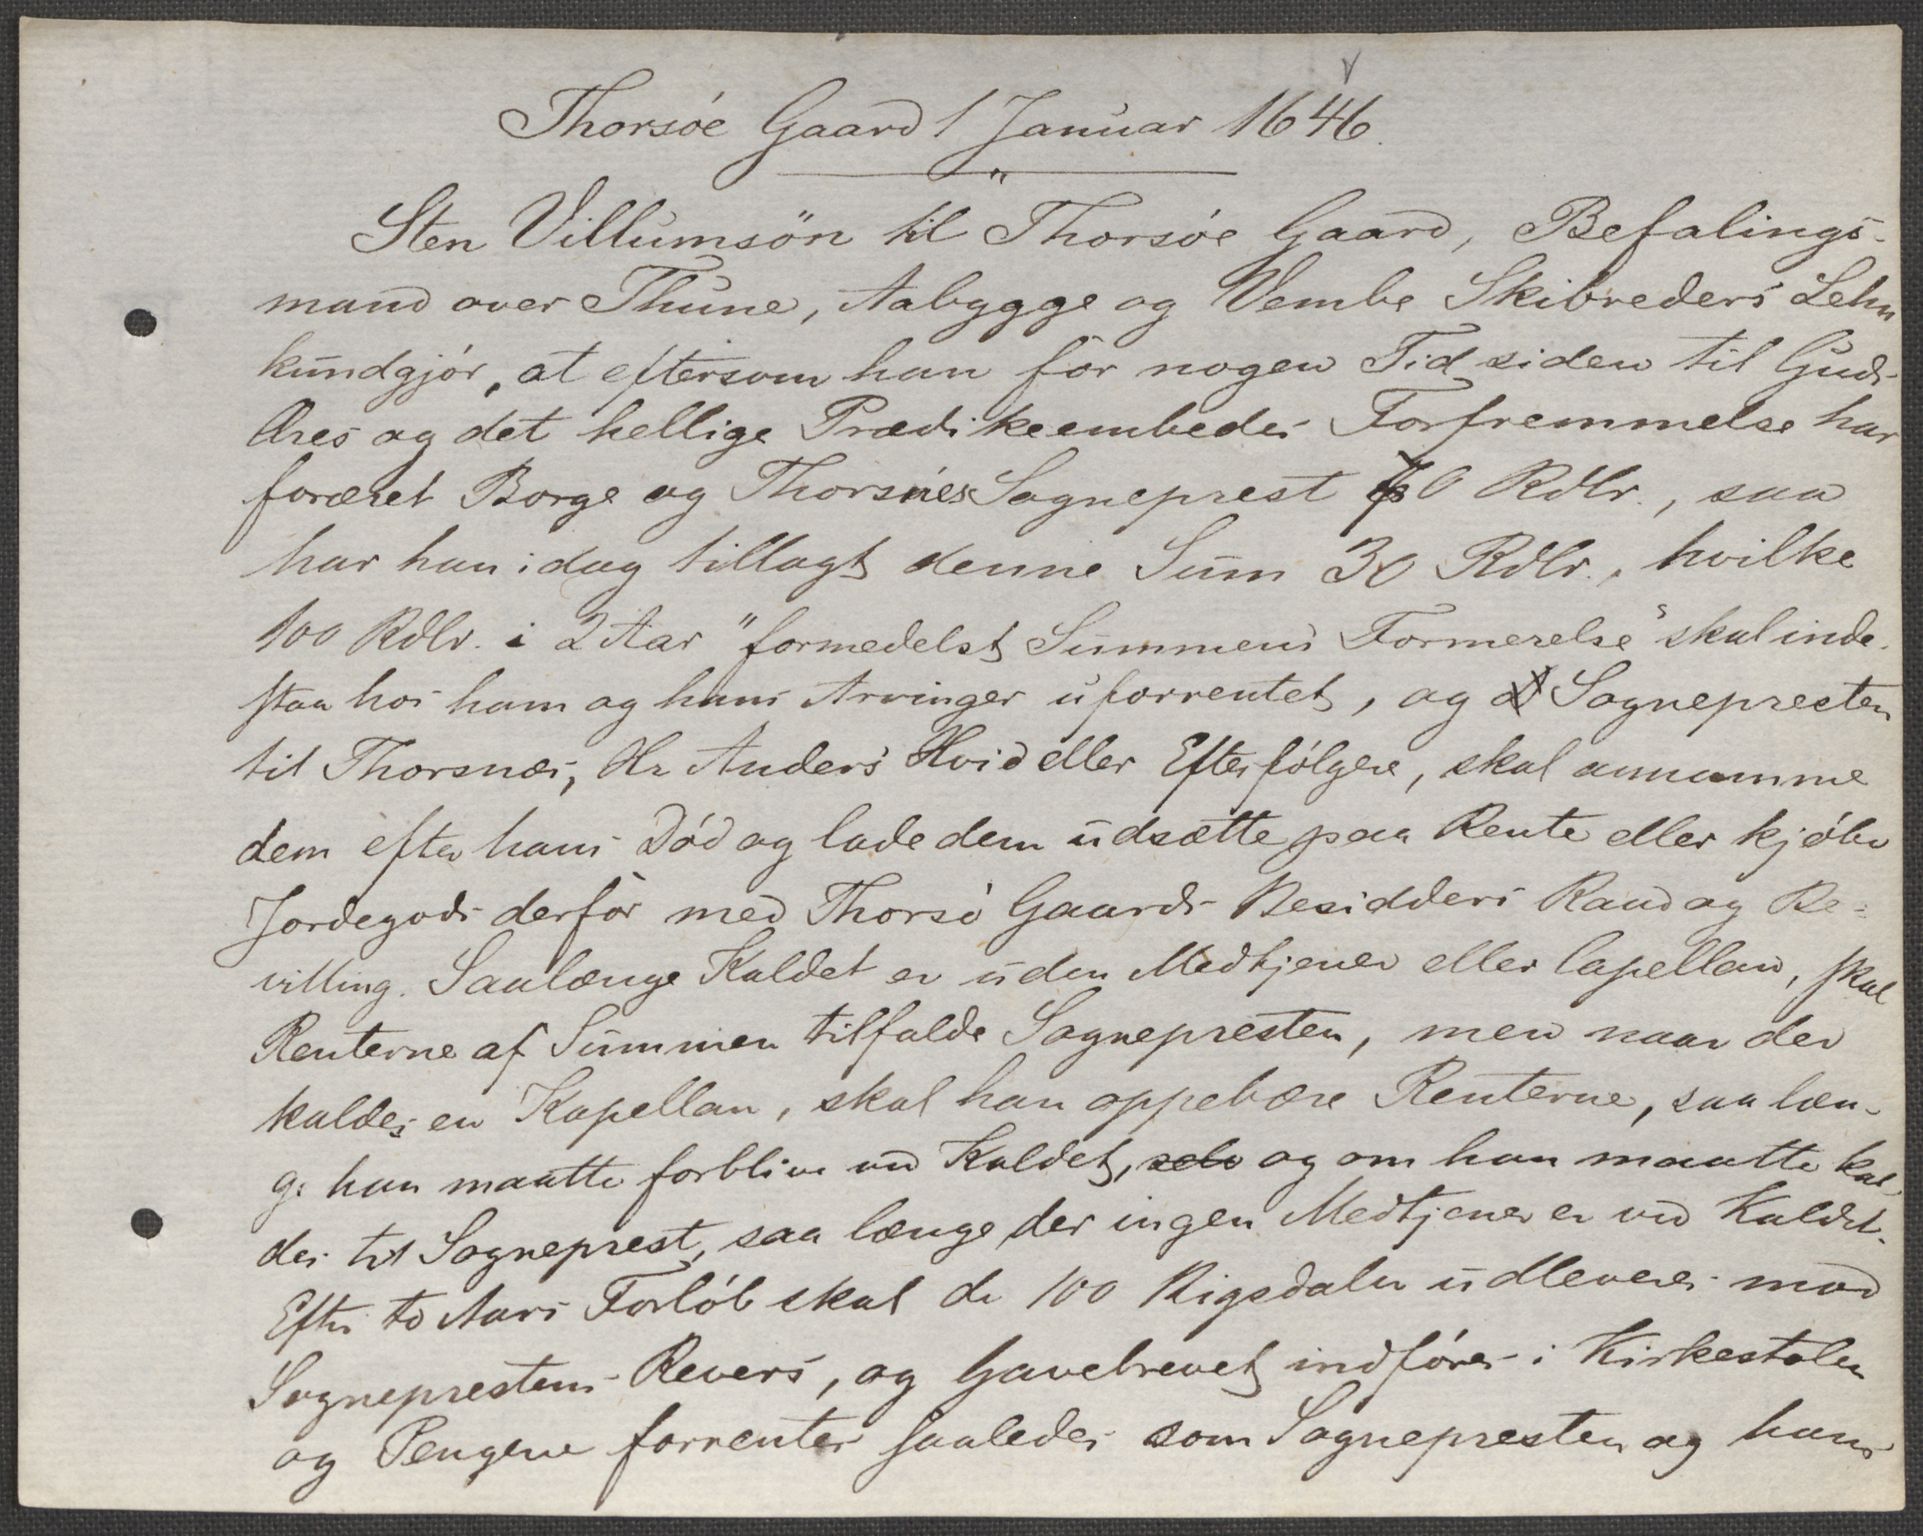 Thorsøe Gaard 1 Januar 1646.
Sten Villumsön til Thorsøe Gaard, Befalings-
mand over Thune, Aabygge og Vembe Skibreders Lehn
kundgjør, at eftersom han for nogen Tid siden til Guds
Æres og det hellige Prædikeembedes Forfremmelse har
foræret Borge og Thorsnes Sogneprest 70 Rdlr., saa
har han idag tillagt denne Sum 30 Rdlr., hvilke
100 Rdlr. i 2 Aar "formedelst Summens Formerelse" skal inde-
staa hos ham og hans Arvinger uforrentet, og Sognepresten
til Thorsnæs, Hr Anders Hvid eller Efterfølgere, skal annamme
dem efter hans Død og lade dem udsætte paa Rente eller kjøbe
Jordegods derfor med Thorsø Gaards Besidders Raad og Be-
villing. Saalænge Kaldet er uden Medtjener eller Capellan, skal
Renterne af Summen tilfalde Sognepresten, men naar der
kaldes en Kapellan, skal han oppebære Renterne, saa læn-
ge han maatte forblive ved Kaldet, selv og om han maatte kal-
des til Sogneprest, saa længe der ingen Medtjener er ved Kaldet.
Efter to Aars Forløb skal de 100 Rigsdaler udleveres mod
Sogneprestens Revers, og Gavebrevet indføres i Kirkestolen
og Pengene forrentes saaledes som Sognepresten og hans